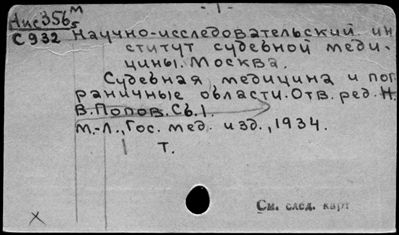 - 1 -
Нис356 м/5
С932 Научно-исследовательский ин
ститут судебной меди-
цины. Москва.
Судебная медицина и пог
раничные области. Отв. ред. Н.
В. Попов. Сб. 1.
М.-Л., Гос. мед. изд., 1934.
Т.
См. след. карт
X